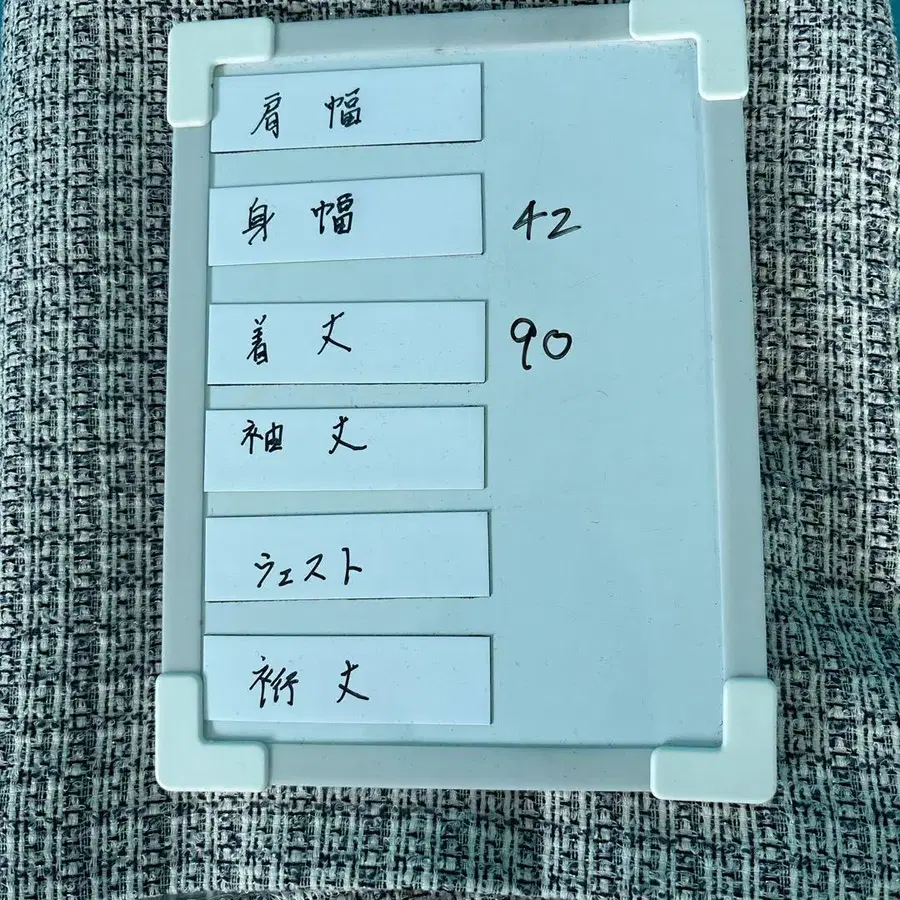 肩幅
身幅 42
着丈 90
袖丈
ウェスト
裄丈